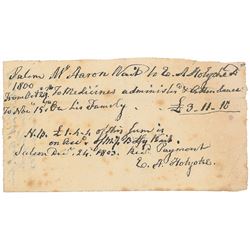 Salem Mr Aaron Wait to E. A Holyoke Dr
1800
From Oct 29. To Medicines administd & Attendance
To Novr 15th On his Family. £3-11-10
N.B. £1-4-4 of this Sum is
on Acct of
Salem Decr. 24. 1803. Recd Payment
E. A Holyoke